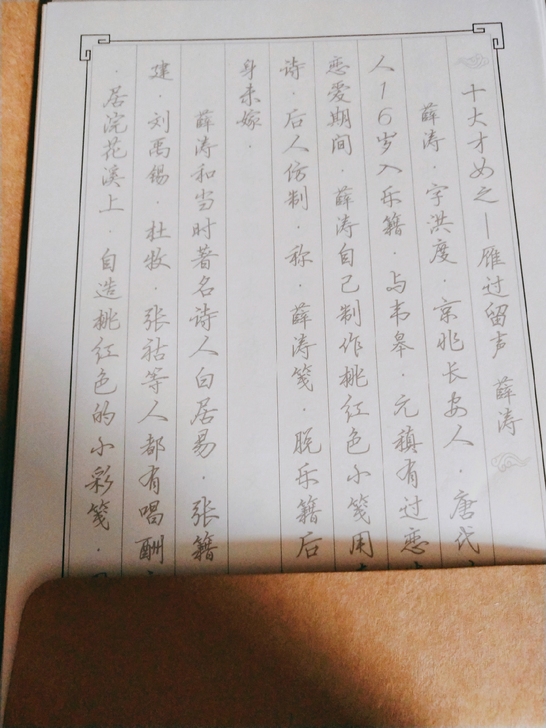 十大才女之—雁过留声 薛涛
薛涛．字洪度．京兆长安人．唐代
人16岁入乐籍．与韦皋．元稹有过恋
恋爱期间．薛涛自己制作桃红色小笺用
诗．后人仿制．称．薛涛笺．脱乐籍后
身未嫁．
薛涛和当时著名诗人白居易．张籍
建．刘禹锡．杜牧．张祜等人都有唱酬
．居浣花溪上．自造桃红色的小彩笺．